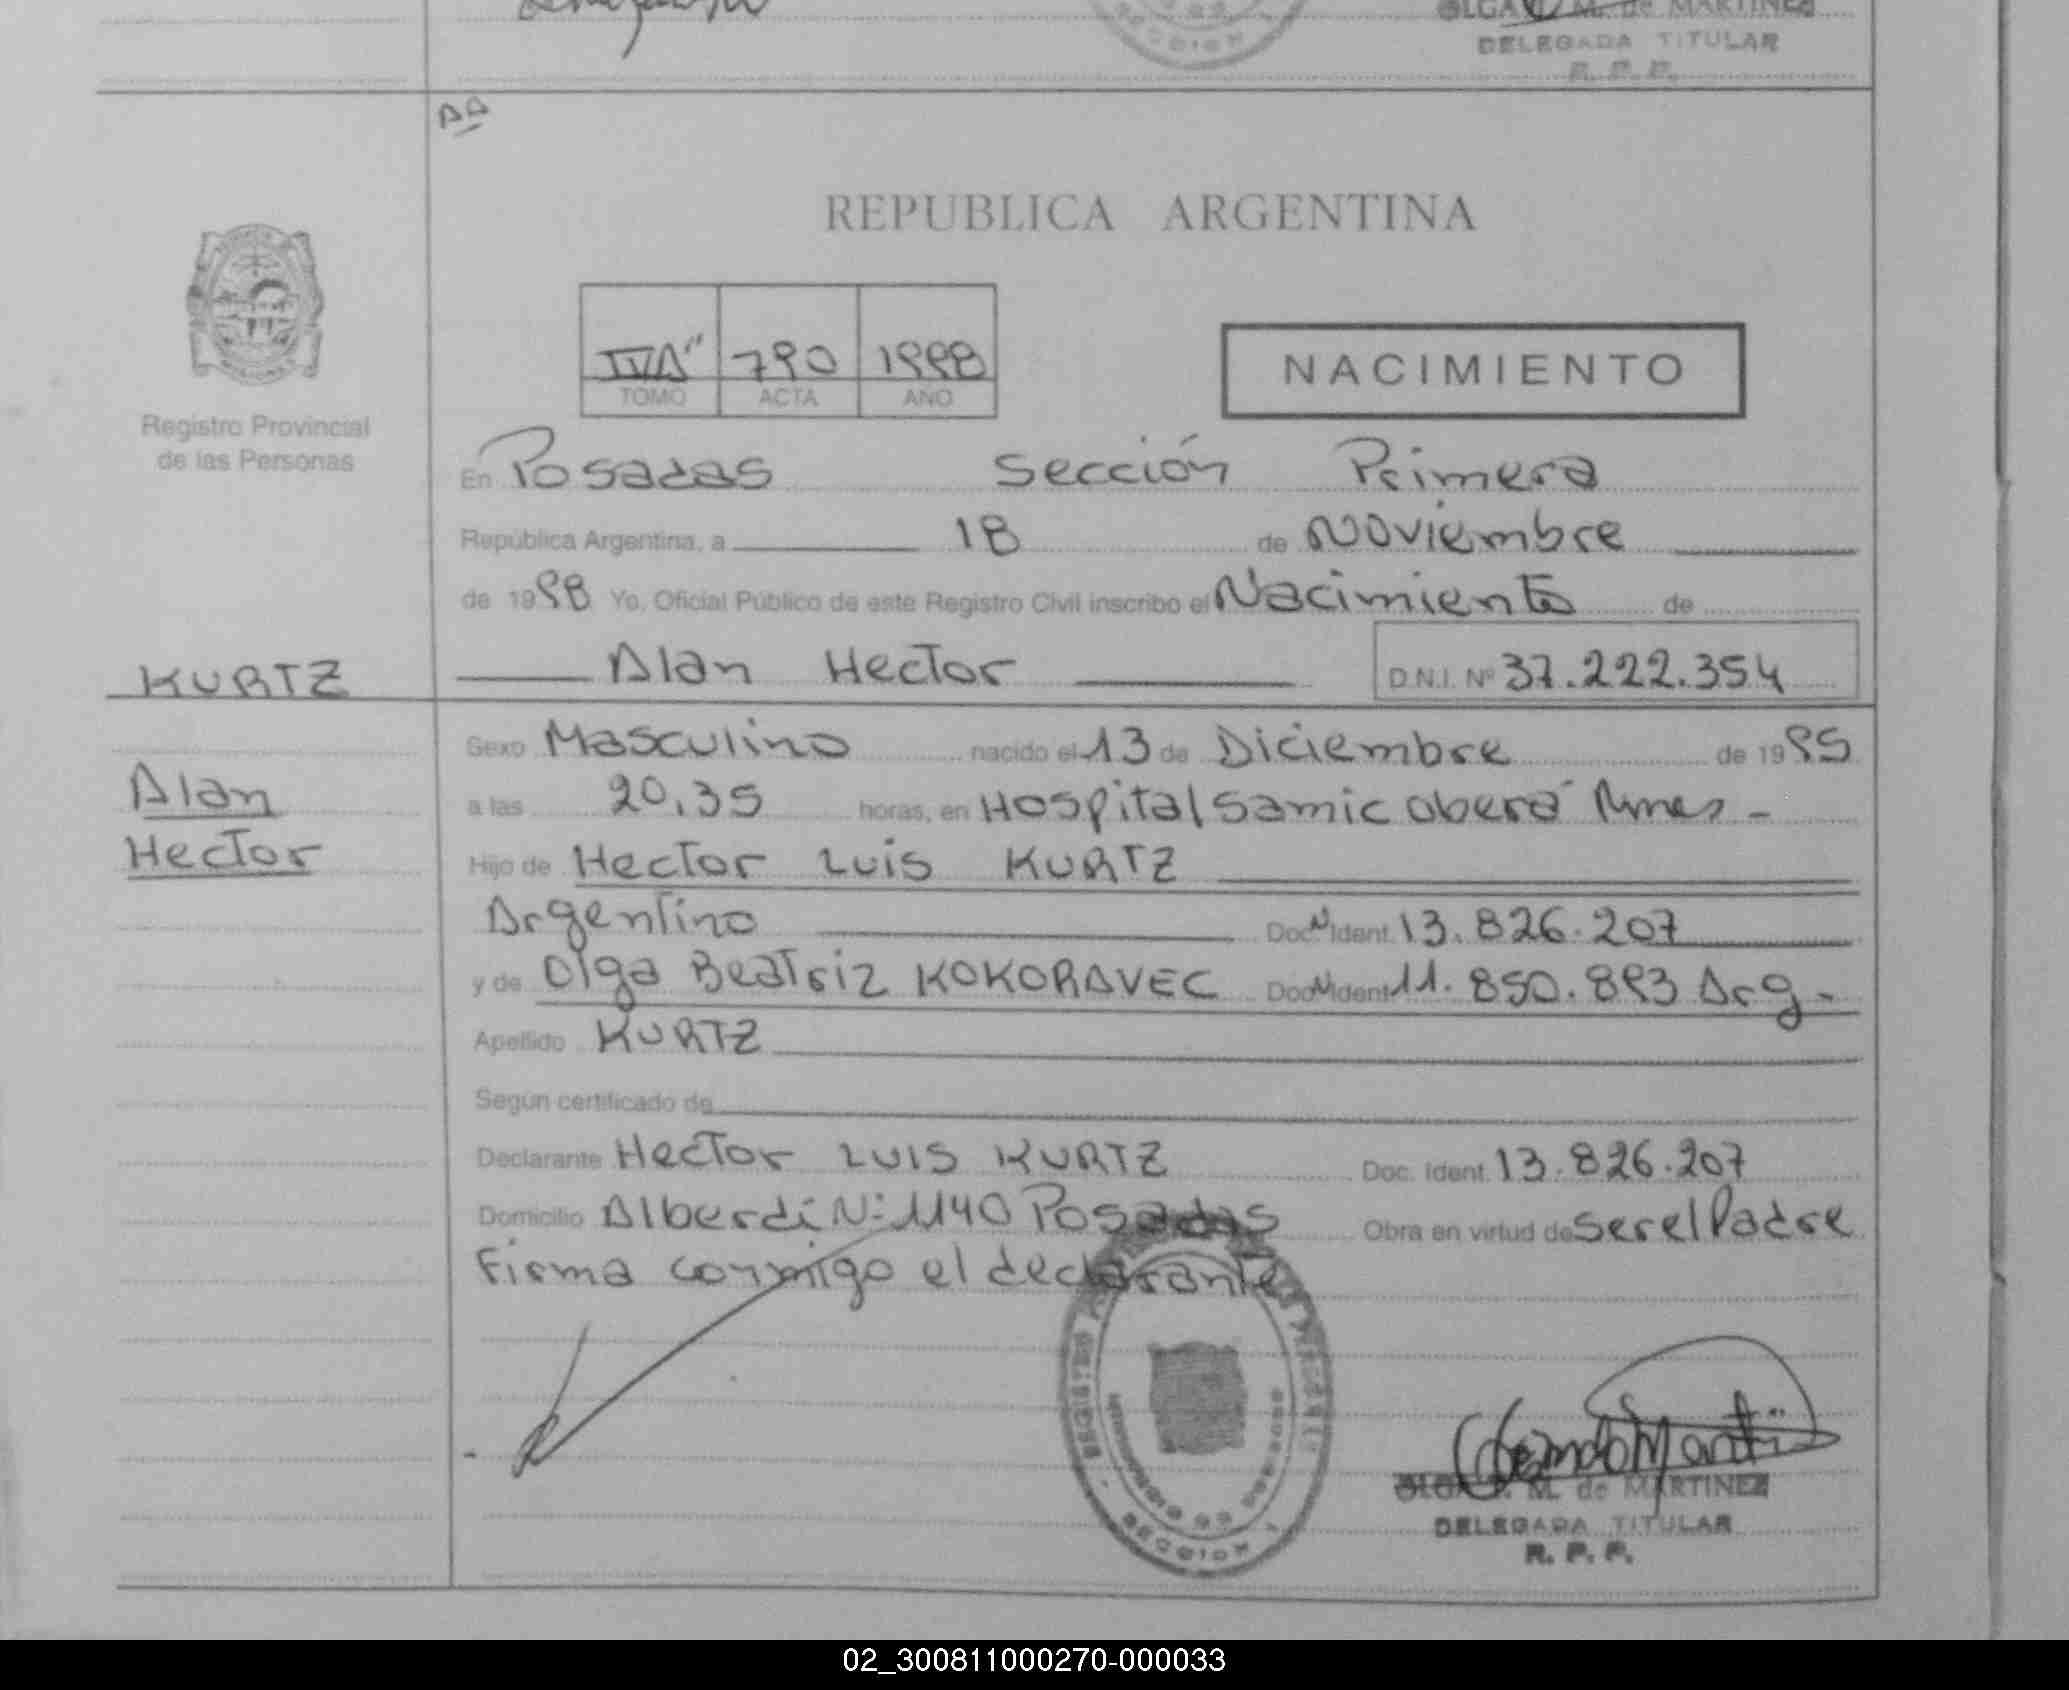 M. de MARTINEZ
DELEGADA TITULAR
R. P. P.
REPUBLICA ARGENTINA
IV"A" 790 1998
TOMO ACTA AÑO
NACIMIENTO
Registro Provincial
de las Personas
En Posadas Sección Primera
República Argentina, a 18 de Noviembre
de 1998 Yo, Oficial Público de este Registro Civil inscribo el Nacimiento de
KURTZ Alan Hector D.N.I. Nº 37.222.354
Sexo Masculino nacido el 13 de Diciembre de 1995
Alan
a las 20,35 horas, en Hospital Samic Oberá Mnes -
Hector
Hijo de Hector Luis KURTZ
Argentino Doc. Ident. 13.826.207
y de Olga Beatriz KOKORAVEC Doc. Ident. 11.850.893 Arg -
Apellido KURTZ
Según certificado de
Declarante Hector LUIS KURTZ Doc. Ident. 13.826.207
Domicilio Alberdi Nº 1140 Posadas Obra en virtud de ser el Padre
Firma conmigo el declarante
M. de MARTINEZ
DELEGADA TITULAR
R. P. P.
SECCION
02_300811000270-000033